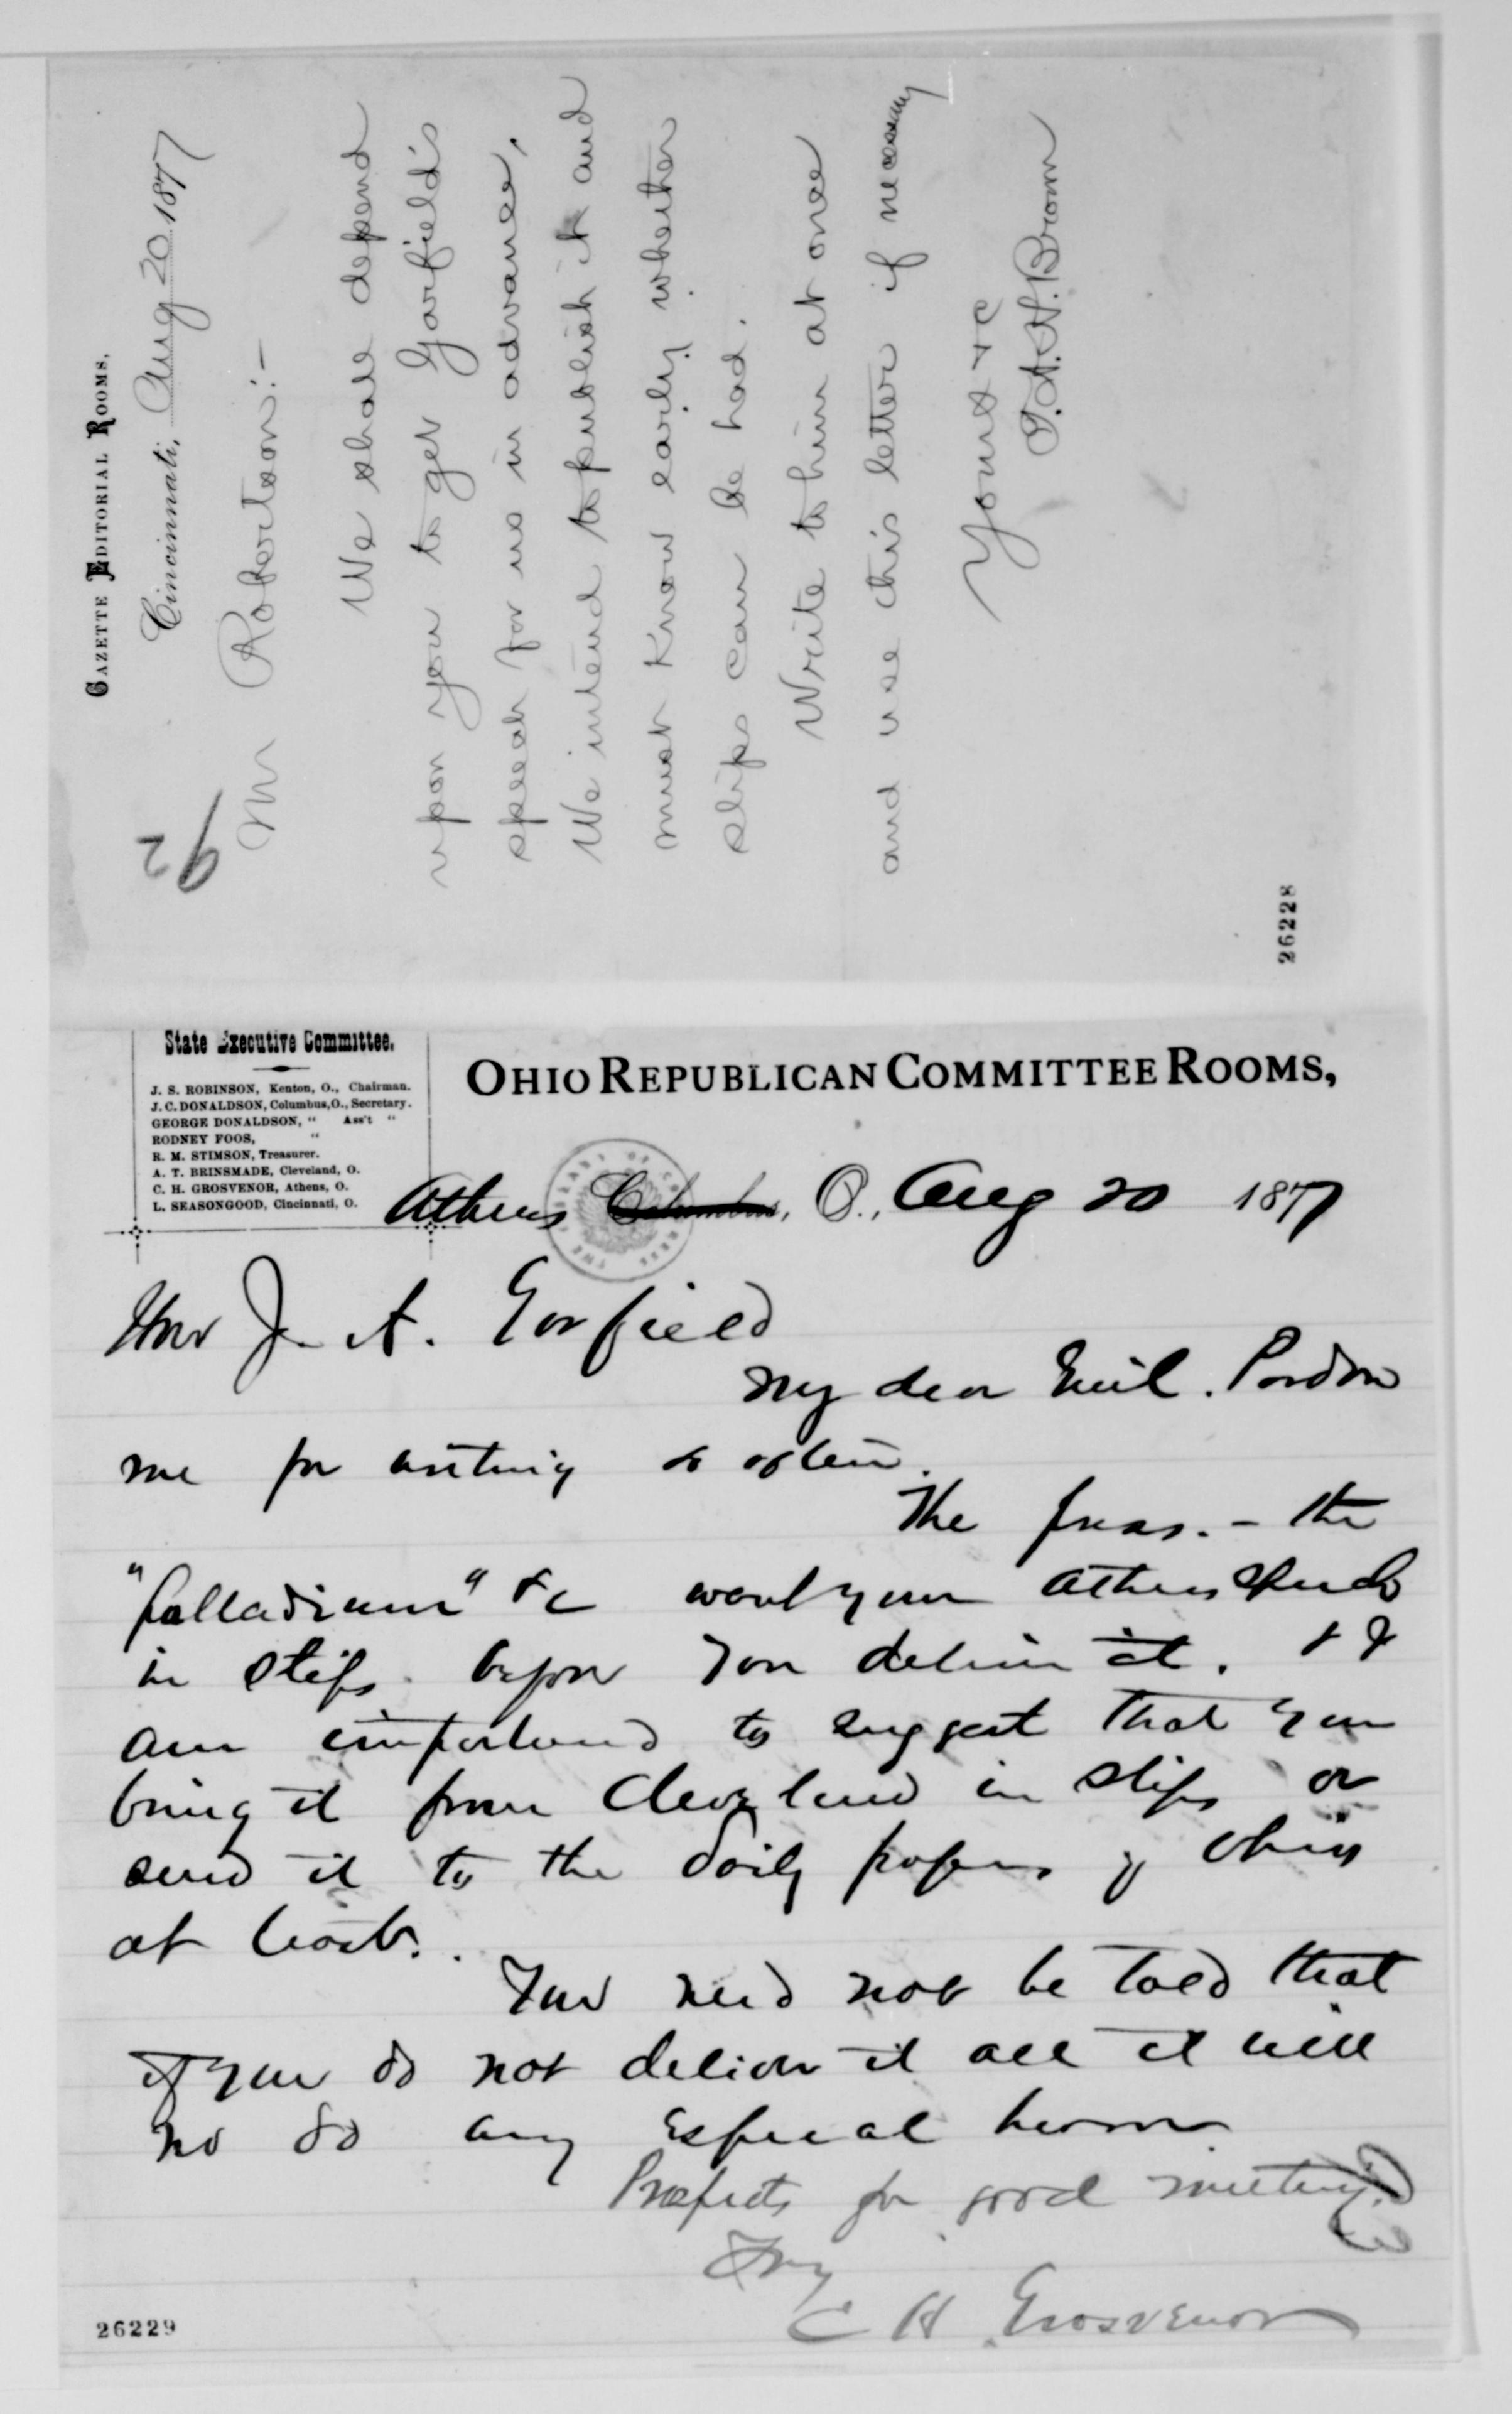 GAZETTE EDITORIAL ROOMS.
Cincinnati, Aug 20 1877
92
Mr Robertson:—
We shall depend
upon you to get Garfield's
speech for us in advance.
We intend to publish it and
must know early whether
slips can be had.
Write to him at once
and use this letter if necessary
Yours &c
T.A.H. Brown
26228
State Executive Committee.
J. S. ROBINSON, Kenton, O., Chairman.
J. C. DONALDSON, Columbus, O., Secretary.
GEORGE DONALDSON, " Ass't "
RODNEY FOOS, "
R. M. STIMSON, Treasurer.
A. T. BRINSMADE, Cleveland, O.
C. H. GROSVENOR, Athens, O.
L. SEASONGOOD, Cincinnati, O.
OHIO REPUBLICAN COMMITTEE ROOMS,
Athens Columbus, O., Aug 20 1877
Hon J. A. Garfield
My dear Genl. Pardon
me for writing so often.
The press. - the
"palladium" &c want your Athens speech
in slips before you deliver it. & I
am importuned to suggest that you
bring it from Cleveland in slips or
send it to the daily papers of Ohio
at least.
You need not be told that
if you do not deliver it all it will
no do any especial harm
Prospects for good meeting.
C H Grosvenor
26229